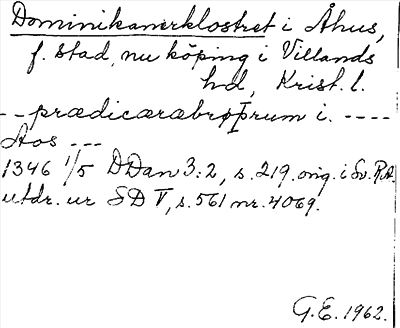 Dominikanerklostret i Åhus,
f. stad, nu köping i Villands
hd, Krist. l.
-- prædicæræbrøþrum i. ----
Aos ---
1346 1/5 DDan 3:2, s. 219. orig. i Sv. R.A.
utdr. ur SD V, s. 561 nr. 4069.
G.E. 1962.